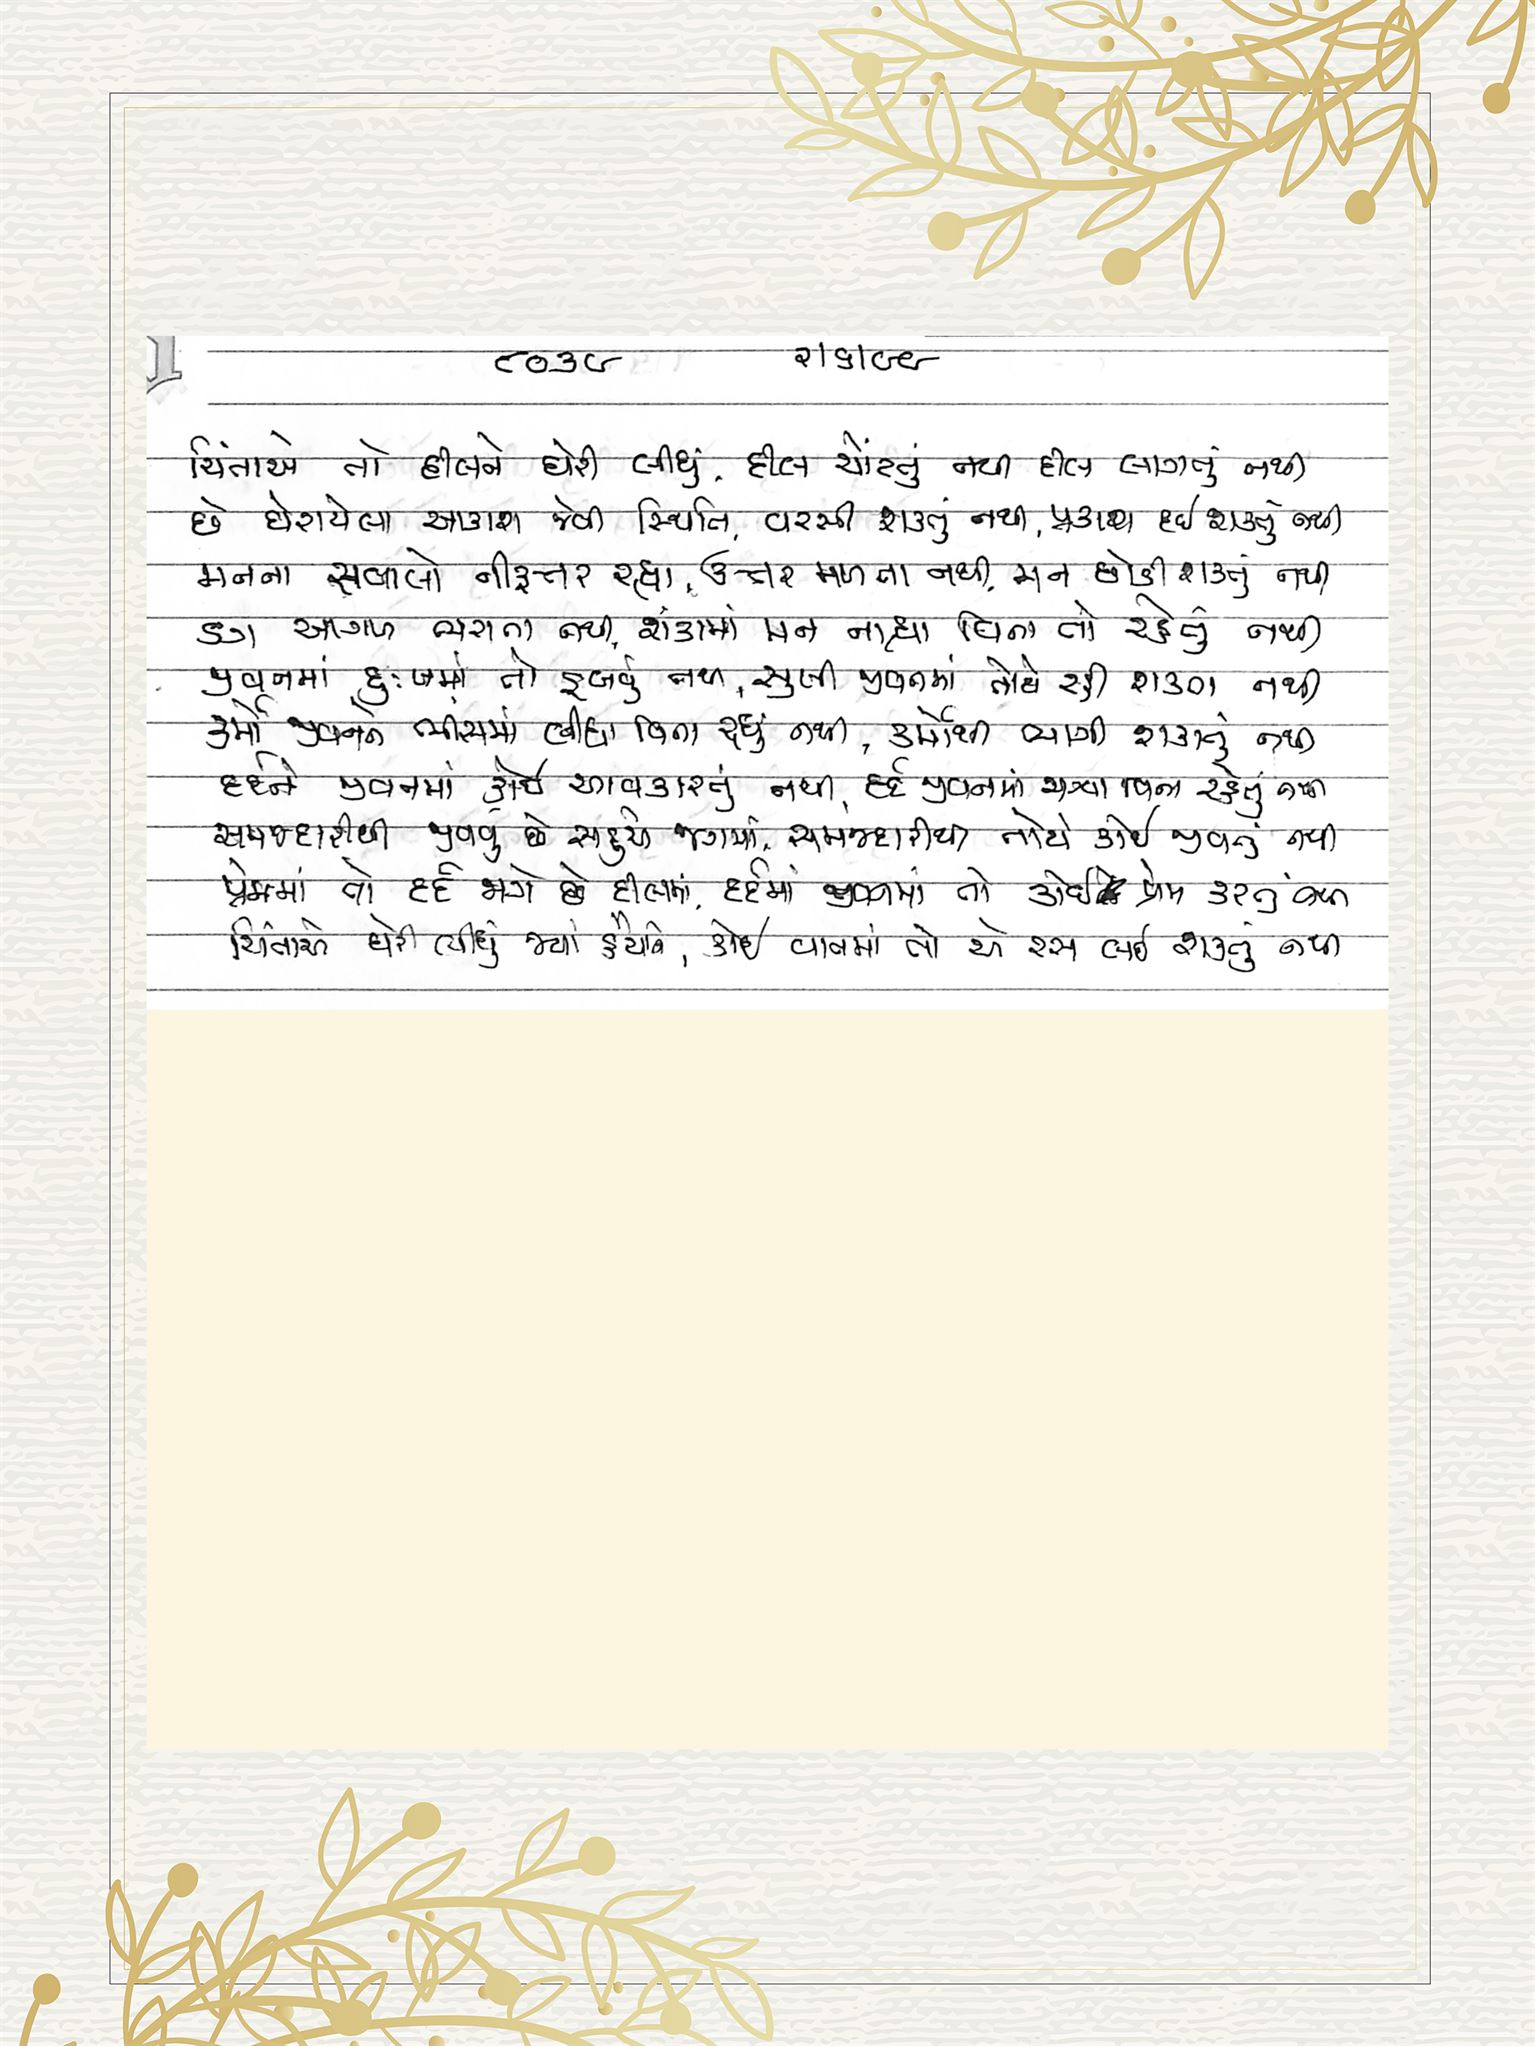 ૮૦૩૮ ૨।૬।૯૯
ચિંતાએ તો દીલને ઘેરી લીધું, દીલ ચોંટતું નથી દીલ લાગતું નથી
છે ઘેરાયેલા આકાશ જેવી સ્થિતિ, વરસી શકતું નથી, પ્રકાશ દઈ શકતું નથી
મનના સવાલો નીરૂત્તર રહ્યા, ઉત્તર મળતા નથી, મન છોડી શકતું નથી
ડગ આગળ વધાતા નથી, શંકામાં મન નાહ્યા વિના તો રહેતું નથી
જીવનમાં દુઃખમાં તો ડૂબવું નથી, સુખી જીવનમાં તોયે રહી શકતા નથી
કર્મો જીવનને ભીંસમાં લીધા વિના રહ્યું નથી, કર્મોથી ભાગી શકાતું નથી
દર્દને જીવનમાં કોઈ આવકારતું નથી, દર્દ જીવનમાં મળ્યા વિના રહેતું નથી
સમજદારીથી જીવવું છે સહુએ જગમાં, સમજદારીથી તોયે કોઈ જીવતું નથી
પ્રેમમાં તો દર્દ જાગે છે દીલમાં, દર્દમાં જીવનમાં તો કોઈ પ્રેમ કરતું નથી
ચિંતાએ ઘેરી લીધું જ્યાં હૈયાને, કોઈ વાતમાં તો એ રસ લઈ શકતું નથી